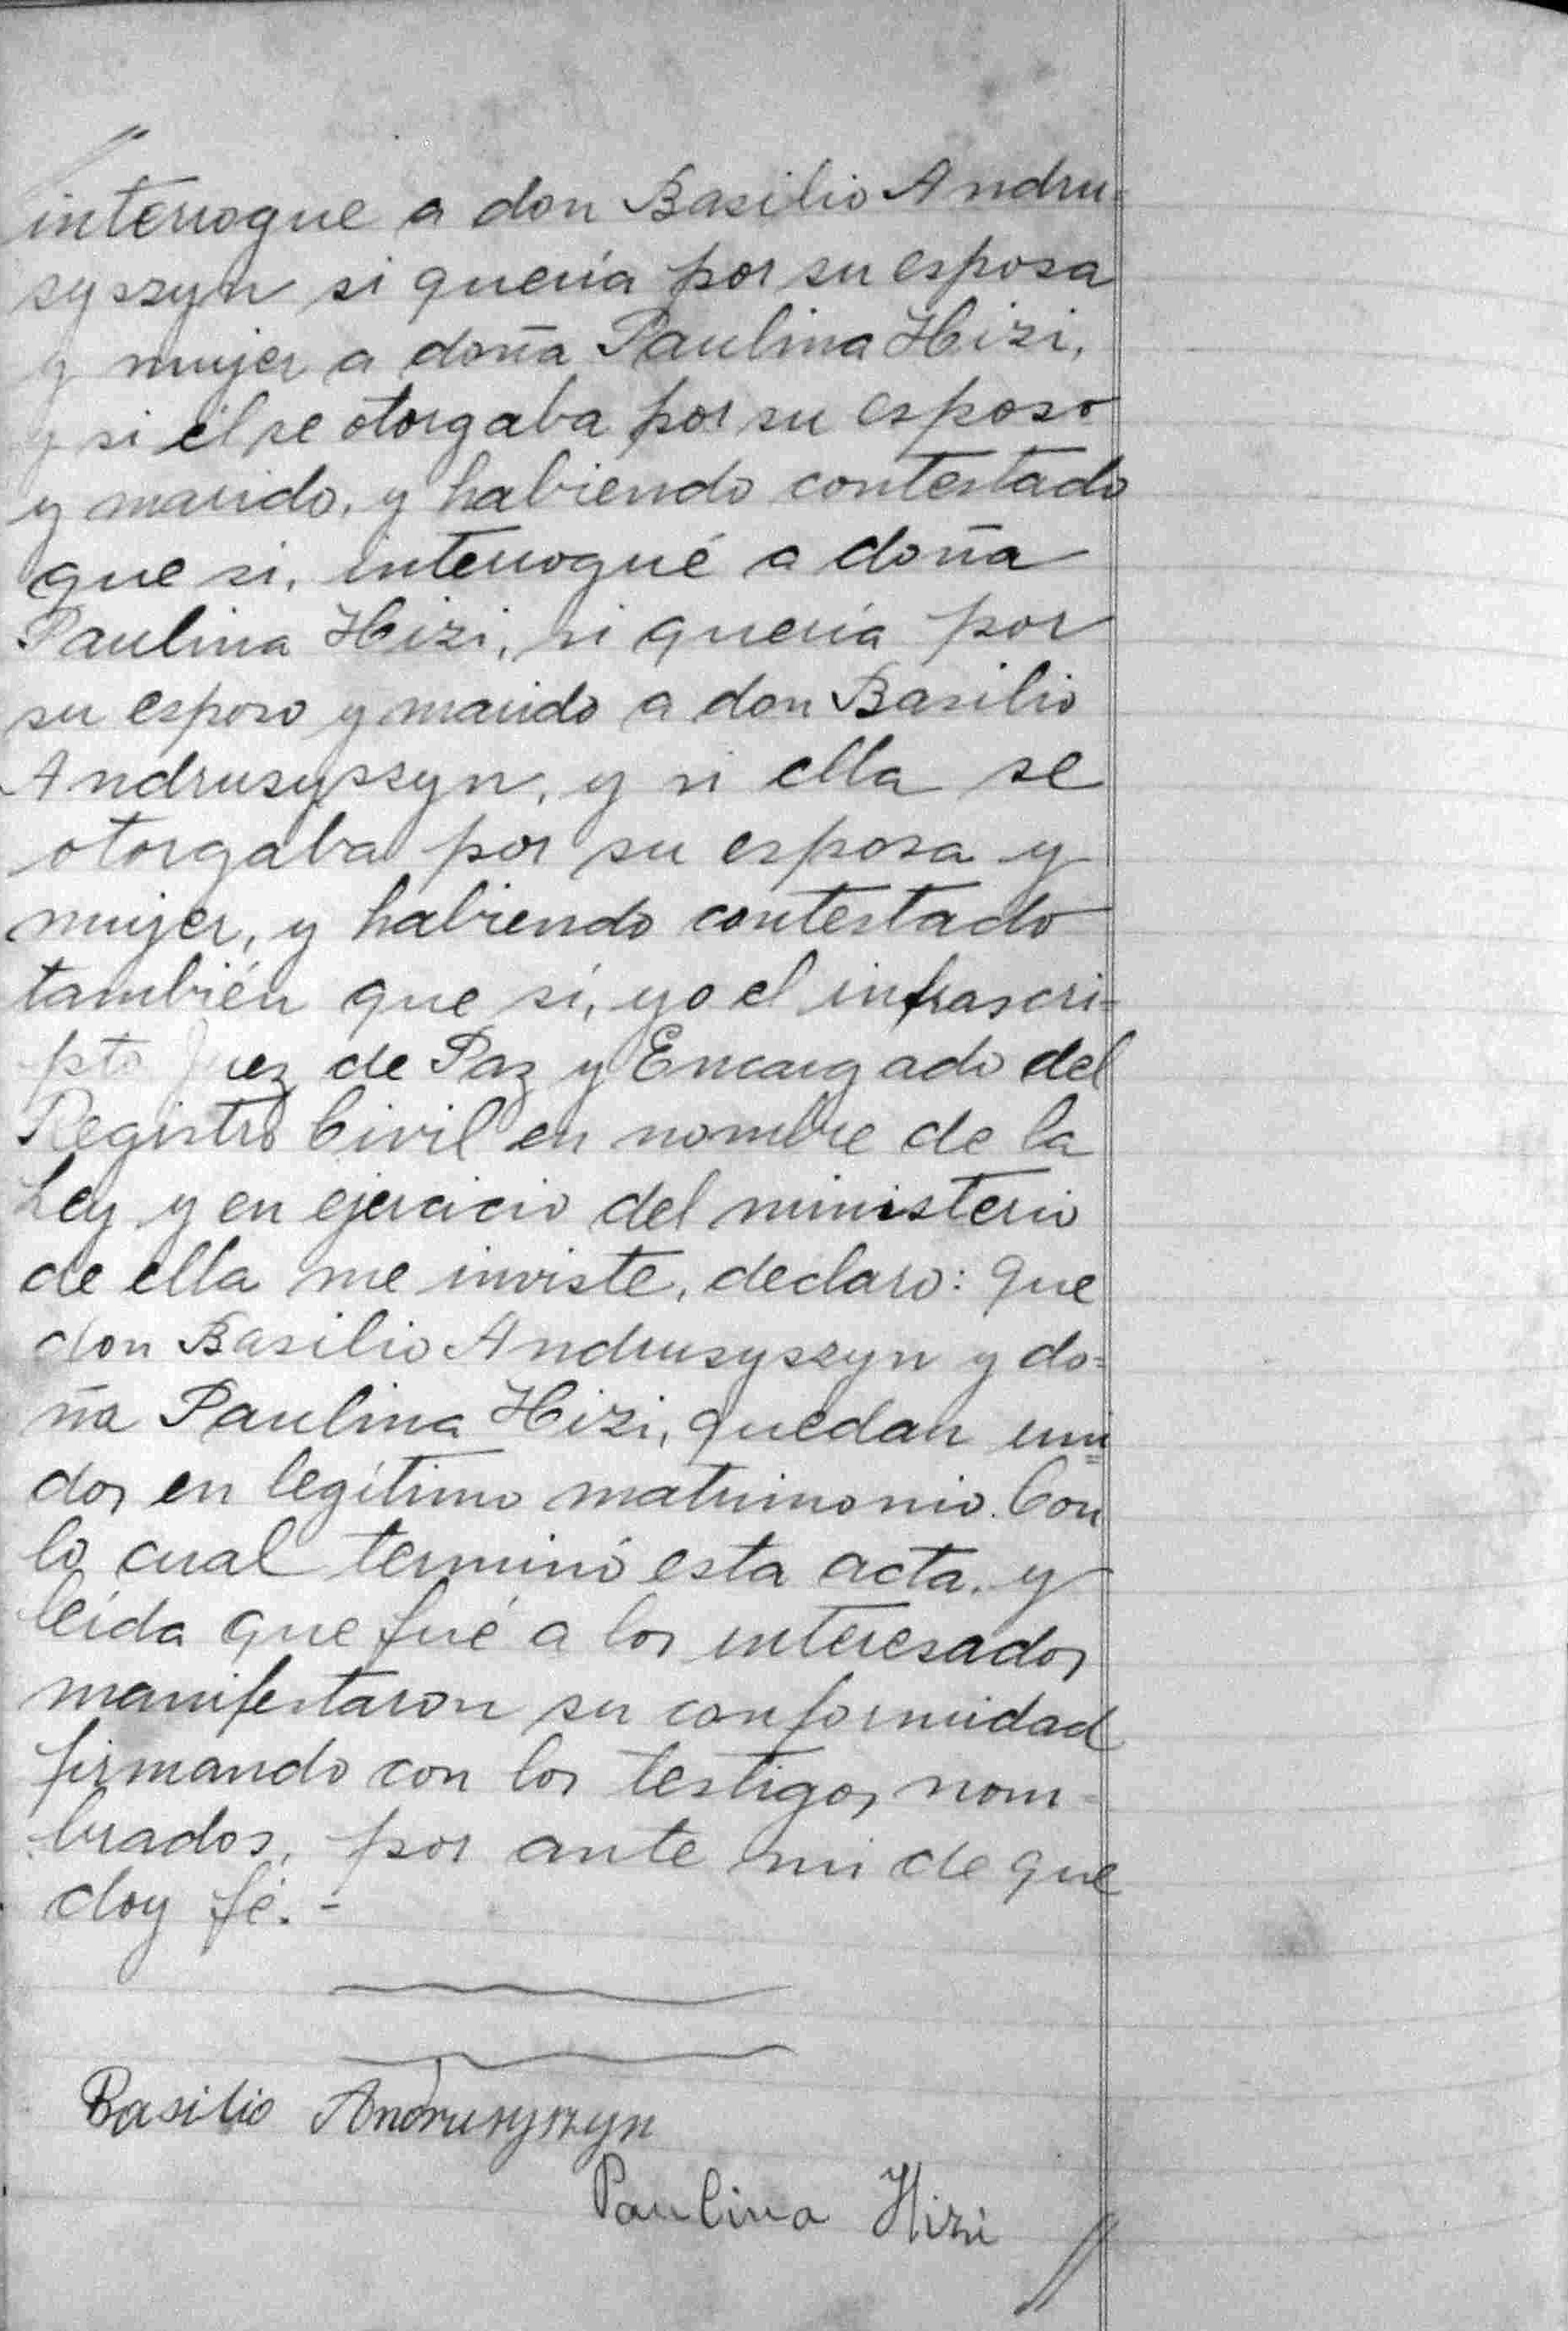 "
interrogue a don Basilio Andru=
syszyn si quería por su esposa
y mujer a doña Paulina Hizi,
y si él se otorgaba por su esposo
y marido, y habiendo contestado
que si, interrogué a doña
Paulina Hizi, si quería por
su esposo y marido a don Basilio
Andrusyszyn, y si ella se
otorgaba por su esposa y
mujer, y habiendo contestado
también que sí, yo el infrascri=
pto Juez de Paz y Encargado del
Registro Civil en nombre de la
Ley y en ejercicio del ministerio
de ella me inviste, declaro: que
don Basilio Andrusyszyn y do=
ña Paulina Hizi, quedan uni=
dos en legítimo matrimonio. Con
lo cual terminó esta acta, y
leída que fué a los interesados
manifestaron su conformidad
firmando con los testigos nom=
brados, por ante mi de que
doy fé.-
Basilio Andrusyszyn
Paulina Hizi
//